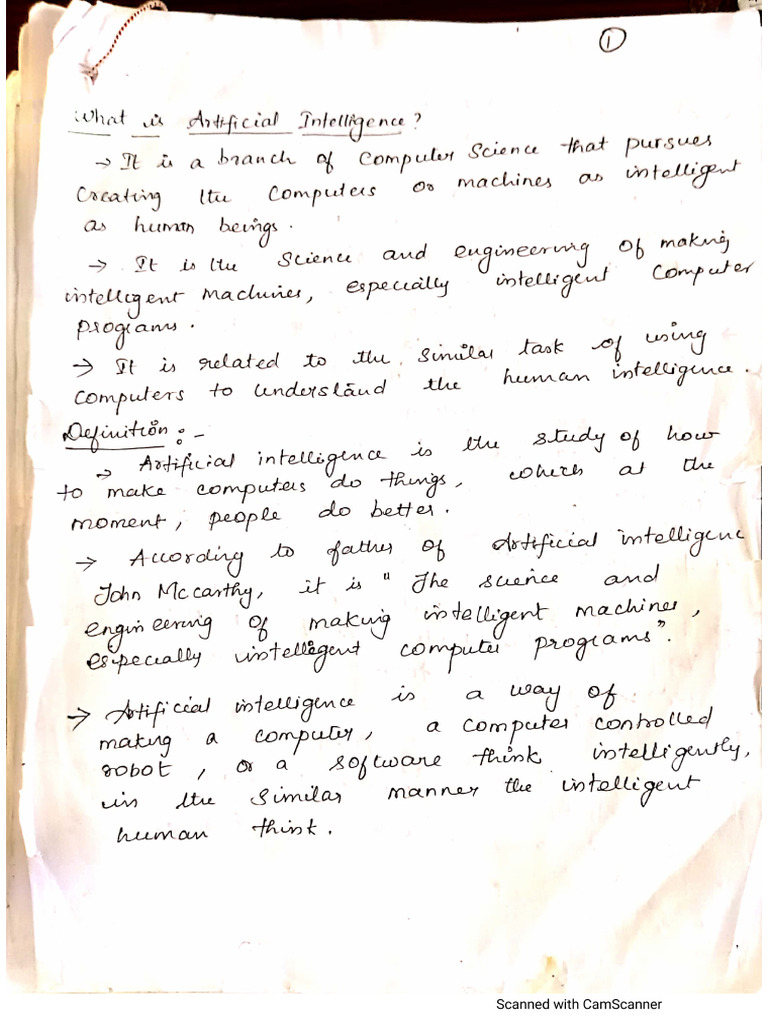 1
What is Artificial Intelligence?
→ It is a branch of Computer Science that pursues
Creating the Computers or machines as intelligent
as human beings.
→ It is the Science and engineering of making
intelligent Machines, especially intelligent Computer
Programs.
→ It is related to the similar task of using
Computers to Understand the human intelligence.
Definition:-
→ Artificial intelligence is the study of how
to make computers do things, which at the
moment, people do better.
→ According to father of Artificial intelligenc
John McCarthy, it is "The science and
engineering of making intelligent machines,
especially intelligent computer programs".
→ Artificial intelligence is a way of
making a computer, a computer controlled
robot, or a software think intelligently,
in the similar manner the intelligent
human think.
Scanned with CamScanner